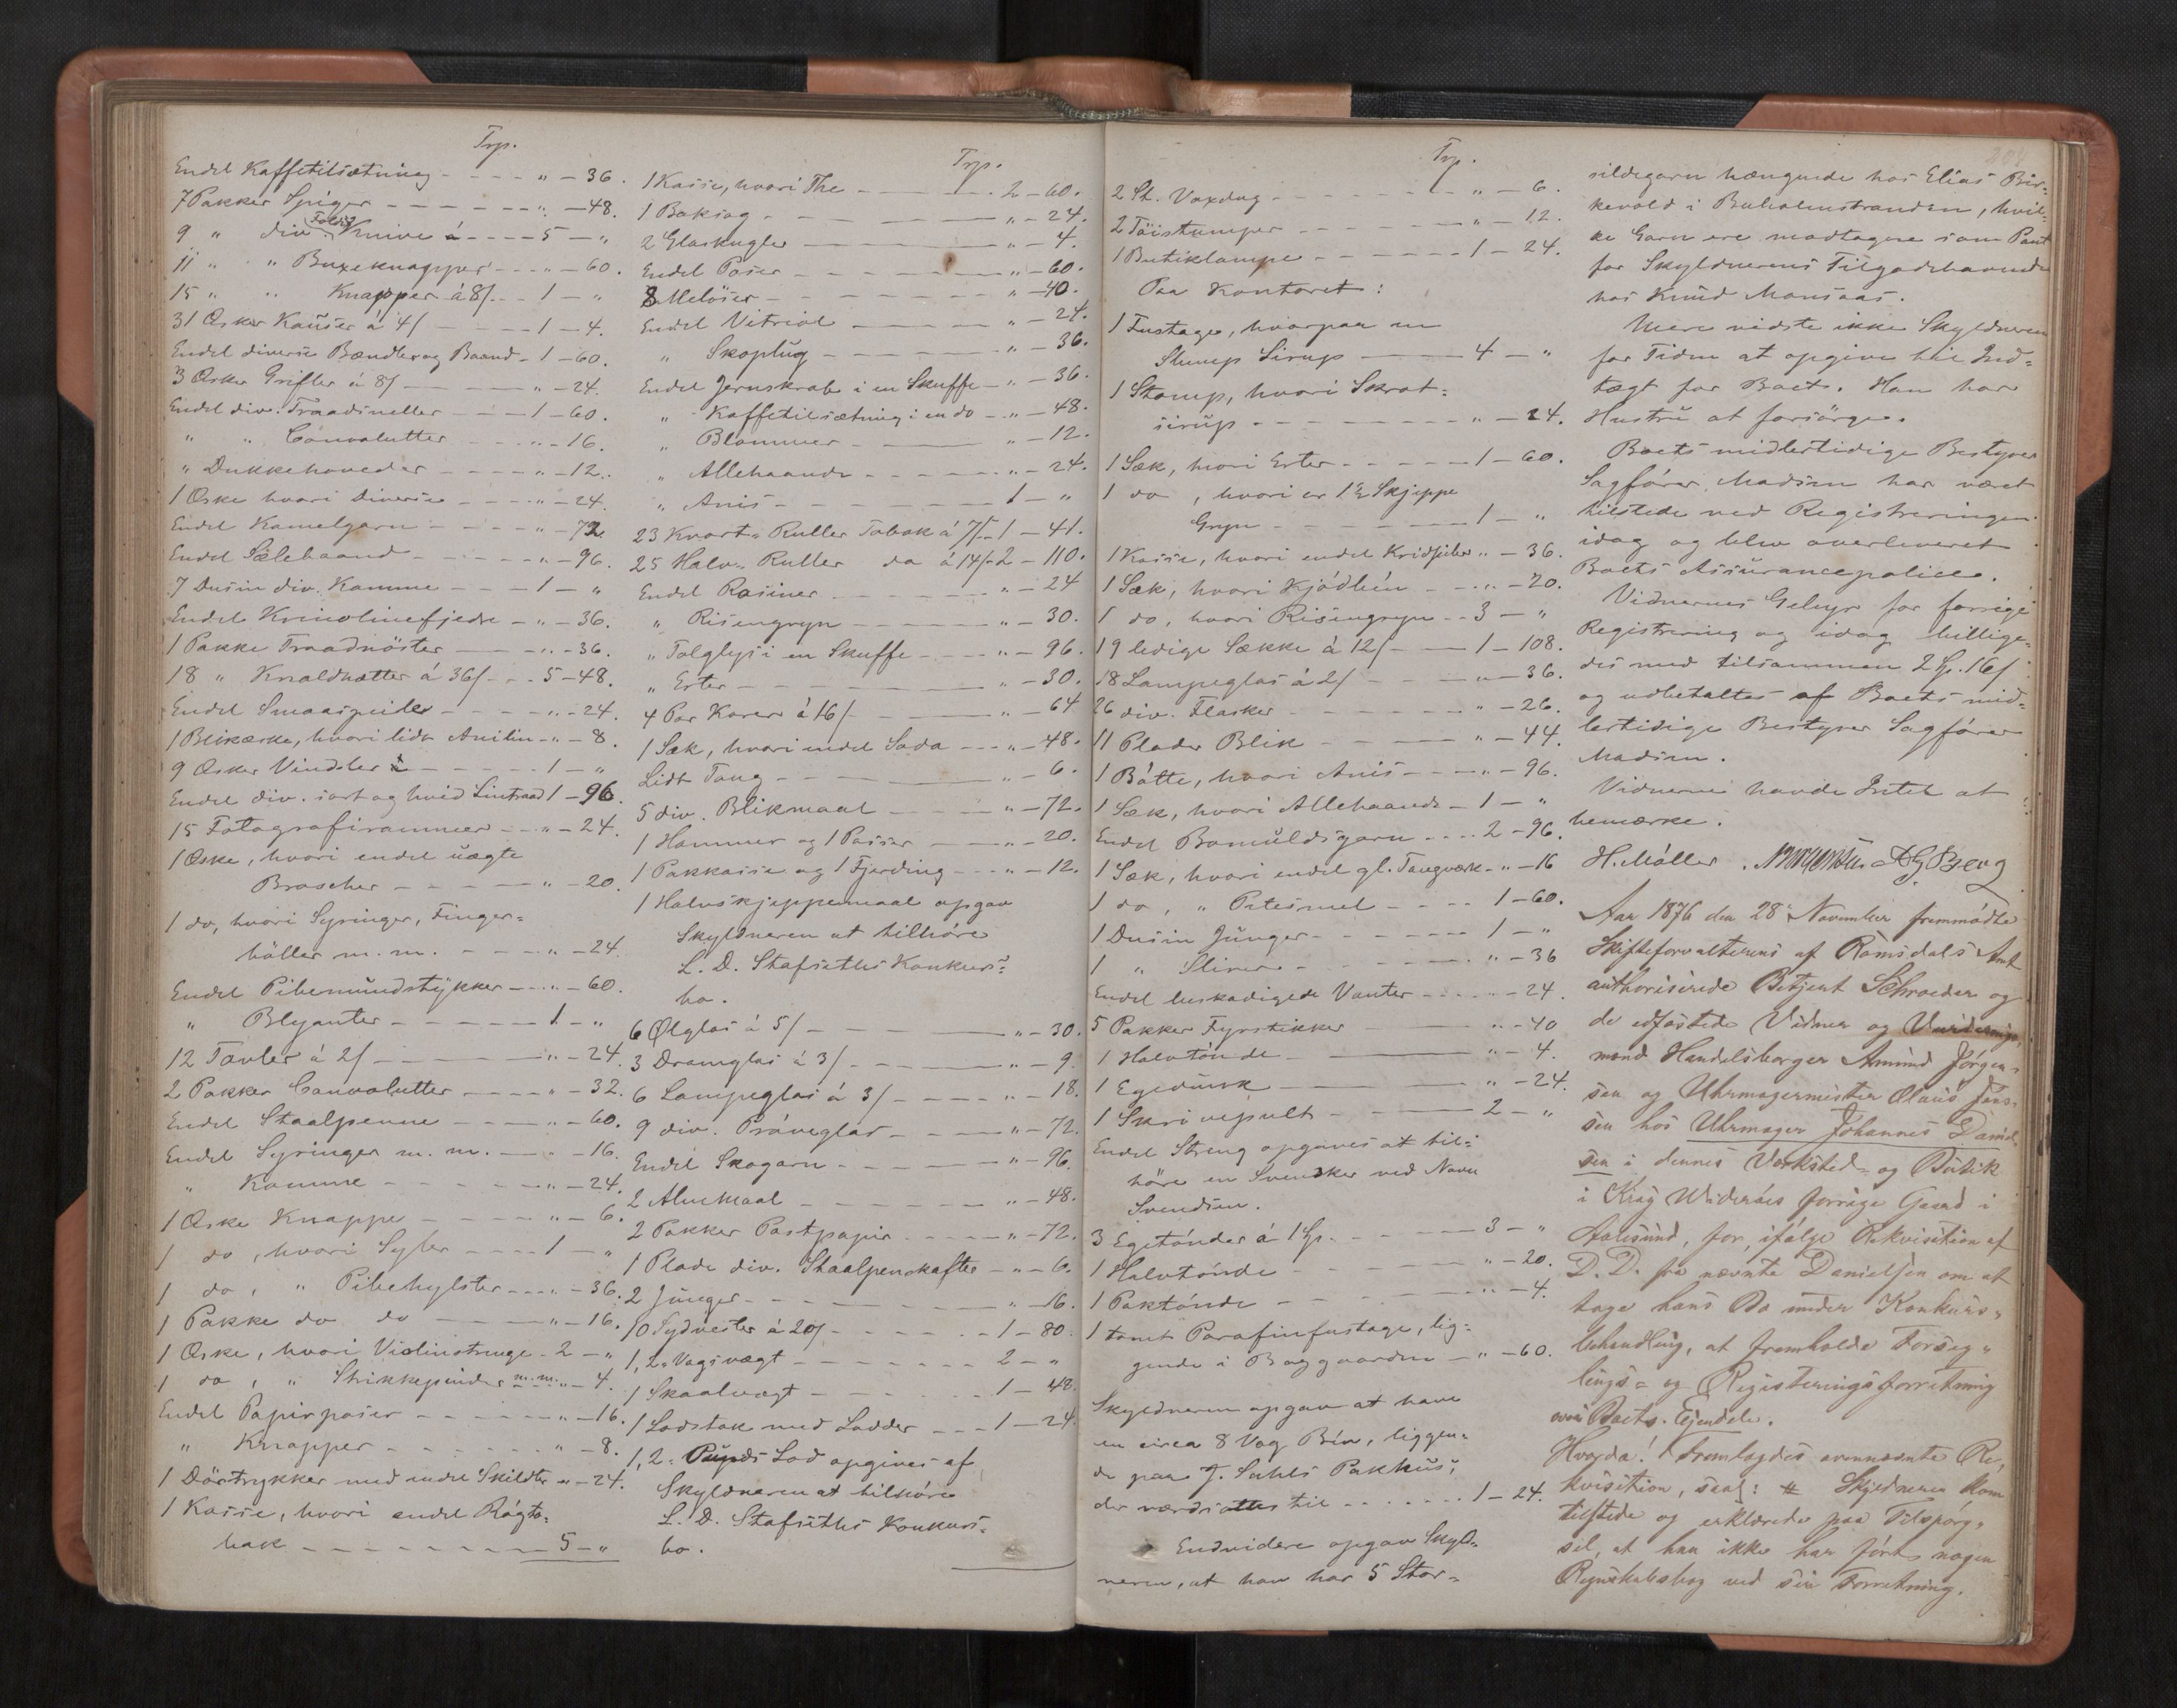 Trp.
Endel Kaffetilsætning - - - - " - 36.
7 Pakker Spiger - - - - - - " - 48.
9 " div. Knive á - - - - 5 - "
11 " " Buxeknapper - - - " - 60.
15 " " Knapper á 8/ - - 1 - "
31 Æsker Kauser á 4/ - - - - 1 - 4.
Endel diverse Bændler og Baand - 1 - 60.
3 Æsker Grifler á 8/ - - - " - 24.
Endel div. Traadsneller - - - 1 - 60.
" " Convolutter - - - " - 16.
" Dukkehoveder - - - - " - 12.
1 Æske hvori Diverse - - - - " - 24.
Endel Kamelgarn - - - - " - 72.
Endel Sælebaand - - - - - " - 96.
7 Dusin div. Kamme - - - 1 - "
Endel Krinolinefjedre - " - 36.
1 Pakke Traadnöster - - - " - 36.
18 " Knaldhætter á 36/ - - 5 - 48.
Endel Smaaspeiler - - - - " - 24.
1 Blikæske, hvori lidt Anilin - " - 8.
9 Æsker Vindsler - - - - - 1 - "
Endel div. sort og hvid Lintraad 1 - 96.
15 Fotografirammer - - " - 24.
1 Æske, hvori endel uægte
Broscher - - - - - " - 20.
1 do, hvori Syringer, Finger-
böller m. m. - - - - " - 24.
Endel Pibemundstykker - - " - 60.
" Blyanter - - - - - - 1 - "
12 Tavler á 2/ - - - - " - 24.
2 Pakker Convolutter - - - - " - 32.
Endel Staalpenne - - - - " - 60.
Endel Syringer m. m. - - " - 16.
" Kamme - - - - - " - 24.
1 Æske Knappe - - - - - " - 6.
1 do, hvori Syler - - - - 1 - "
1 do, " Pibehylster - - - " - 36.
1 Pakke do do - - - " - 16.
1 Æske, hvori Violinstrenge - 2 - "
1 do, " Strikkepinder m. m. " - 4.
Endel Papirposer - - - - - " - 16.
" Knapper - - - - - - " - 8.
1 Dörtrykker med endel Skildte " - 24.
1 Kasse, hvori endel Rögto-
bak - - - - - - - - 5 - "
Trp.
1 Kasse, hvori The - - - - - 2 - 60.
1 Baksag - - - - - - - " - 24.
2 Glaskugler - - - - " - 4.
Endel Poser - - - - - " - 60.
8 Meløser - - - - - - " - 40.
Endel Vitriol - - - - " - 24.
" Skoplug - - - - - " - 36.
Endel Jernskrab i en Skuffe - " - 36.
" Kaffetilsætning i en do - " - 48.
" Blommer - - - - " - 12.
" Allehaande - - - - " - 24.
" Anis - - - - - - - 1 - "
23 Kvart-Ruller Tobak á 7/ - 1 - 41.
25 Halv-Ruller do á 14/ - 2 - 110.
Endel Rosiner - - - - - " - 24
" Risengryn - - - - - " - 30.
" Talglys i en Skuffe - - - " - 96.
" Erter - - - - - - " - 30.
4 Par Karer á 16/ - - - " - 64
1 Sæk, hvori endel Soda - - " - 48.
Lidt Tang - - - - - " - 6.
5 div. Blikmaal - - - - " - 72.
1 Hammer og 1 Passer - - " - 20.
1 Pakkasse og 1 Fjerding - - - " - 12.
1 Halvskjeppemaal opgav
Skyldneren at tilhöre
L. D. Stafseths Konkurs-
bo.
6 Ølglas á 5/ - - - " - 30.
3 Dramglas á 3/ - - - " - 9.
6 Lampeglas á 3/ - - - - " - 18.
9 div. Pröveglas - - - - " - 72.
Endel Skogarn - - - - - " - 96.
2 Alenmaal - - - - - - " - 48.
2 Pakker Postpapir - - - - - " - 72.
1 Plade div. Staalpenskafter - " - 6.
2 Junger - - - - - - - " - 16.
10 Sydvester á 20/ - - - - - 1 - 80.
1, 2-Vogsvægt - - - - - - 2 - "
1 Skaalvægt - - - - - - 1 - 48.
1 Lodstok med Lodder - - - 1 - 24.
1, 2-Punds Lod opgives af
Skyldneren at tilhöre
L. D. Stafseths Konkurs-
bo.
Trp.
2 St. Voxdug - - - - - - " - 6.
2 Töistumper - - - - - - " - 12.
1 Butiklampe - - - - - 1 - 24.
Paa Kontoret:
1 Fustage, hvorpaa en
Slump Sirup - - - 4 - "
1 Stamp, hvori Skrat-
sirup - - - - - - - " - 24.
1 Sæk, hvori Erter - - - - - 1 - 60.
1 do, hvori er 1½ Skjeppe
Gryn - - - - - - 1 - "
1 Kasse, hvori endel Kridpiber " - 36.
1 Sæk, hvori Kjödben - - " - 20.
1 do, hvori Risengryn - - 3 - "
19 ledige Sække á 12/ - - 1 - 108.
18 Lampeglas á 2/ - - - " - 36.
26 div. Flasker - - - - - " - 26.
11 Plader Blik - - - - " - 44.
1 Bötte, hvori Anis - - - " - 96.
1 Sæk, hvori Allehaande - 1 - "
Endel Bomuldsgarn - - - - 2 - 96.
1 Sæk, hvori endel gl. Taugværk - " - 16
1 do, " Potesmel - - - - 1 - 60.
1 Dusin Junger - - - - - - 1 - "
1 " Slirer - - - - - - " - 36
Endel beskadigede Vanter - - - - " - 24.
5 Pakker Fyrstikker " - 40
1 Halvtönde - - - - - " - 4.
1 Egedunk - - - - - " - 24.
1 Skrivepult - - - - - 2 - "
Endel Streng opgaves at til-
höre en Svensker ved Navn
Svendsen.
3 Egetönder á 1 Sp. - - - - - 3 - "
1 Halvtönde - - - - - " - 20.
1 Paktönde - - - - - - " - 4.
1 tomt Parafinfustage, lig-
gende i Baggaarden - " - 60.
Skyldneren opgav at have
en circa 8 Vog Ben, liggen-
de paa J. Sahls Pakhus,
der værdsattes til - - - - - - - 1 - 24.
Endvidere opgav Skyld-
neren, at han har 5 Stor-
sildegarn hængende hos Elias Bir-
kevold i Buholmstranden, hvil-
ke Garn ere modtagne som Pant
for Skyldnerens Tilgodehavende
hos Knud Monsaas.
Mere vidste ikke Skyldneren
for Tiden at opgive til Ind-
tægt for Boet. Han har
Hustru at forsörge.
Boets midlertidige Bestyrer
Sagförer Madsen har været
tilstede ved Registreringen
idag og blev overleveret
Boets Assurancepolice.
Vidnernes Gebyr for forrige
Registrering og idag billige-
des med tilsammen 2 Sp. 16/
og udbetaltes af Boets mid-
lertidige Bestyrer Sagförer
Madsen.
Vidnerne havde Intet at
bemærke.
H. Möller.
Aar 1876 den 28de November fremmödte
Skifteforvalterens af Romsdals Amt
authoriserede Betjent Schroeder og
de edfæstede Vidner og Vurderings-
mænd Handelsborger Amund Jörgen-
sen og Uhrmagermester Olaus Jens-
sen hos Uhrmager Johannes Daniel-
sen i dennes Værksted- og Butik
i Krag Widerøes forrige Gaard i
Aalesund, for, ifölge Rekvisition af
D. D. fra nævnte Danielsen om at
tage hans Bo under Konkurs-
behandling, at fremholde Forseg-
lings- og Registreringsforretning
over Boets Ejendele.
Hvorda! Fremlagdes ovennævnte Re-
kvisition, saal: # Skyldneren kom
tilstede og erklærede paa Tilspörg-
sel, at han ikke har fört nogen
Regnskabsbog ved sin Forretning.